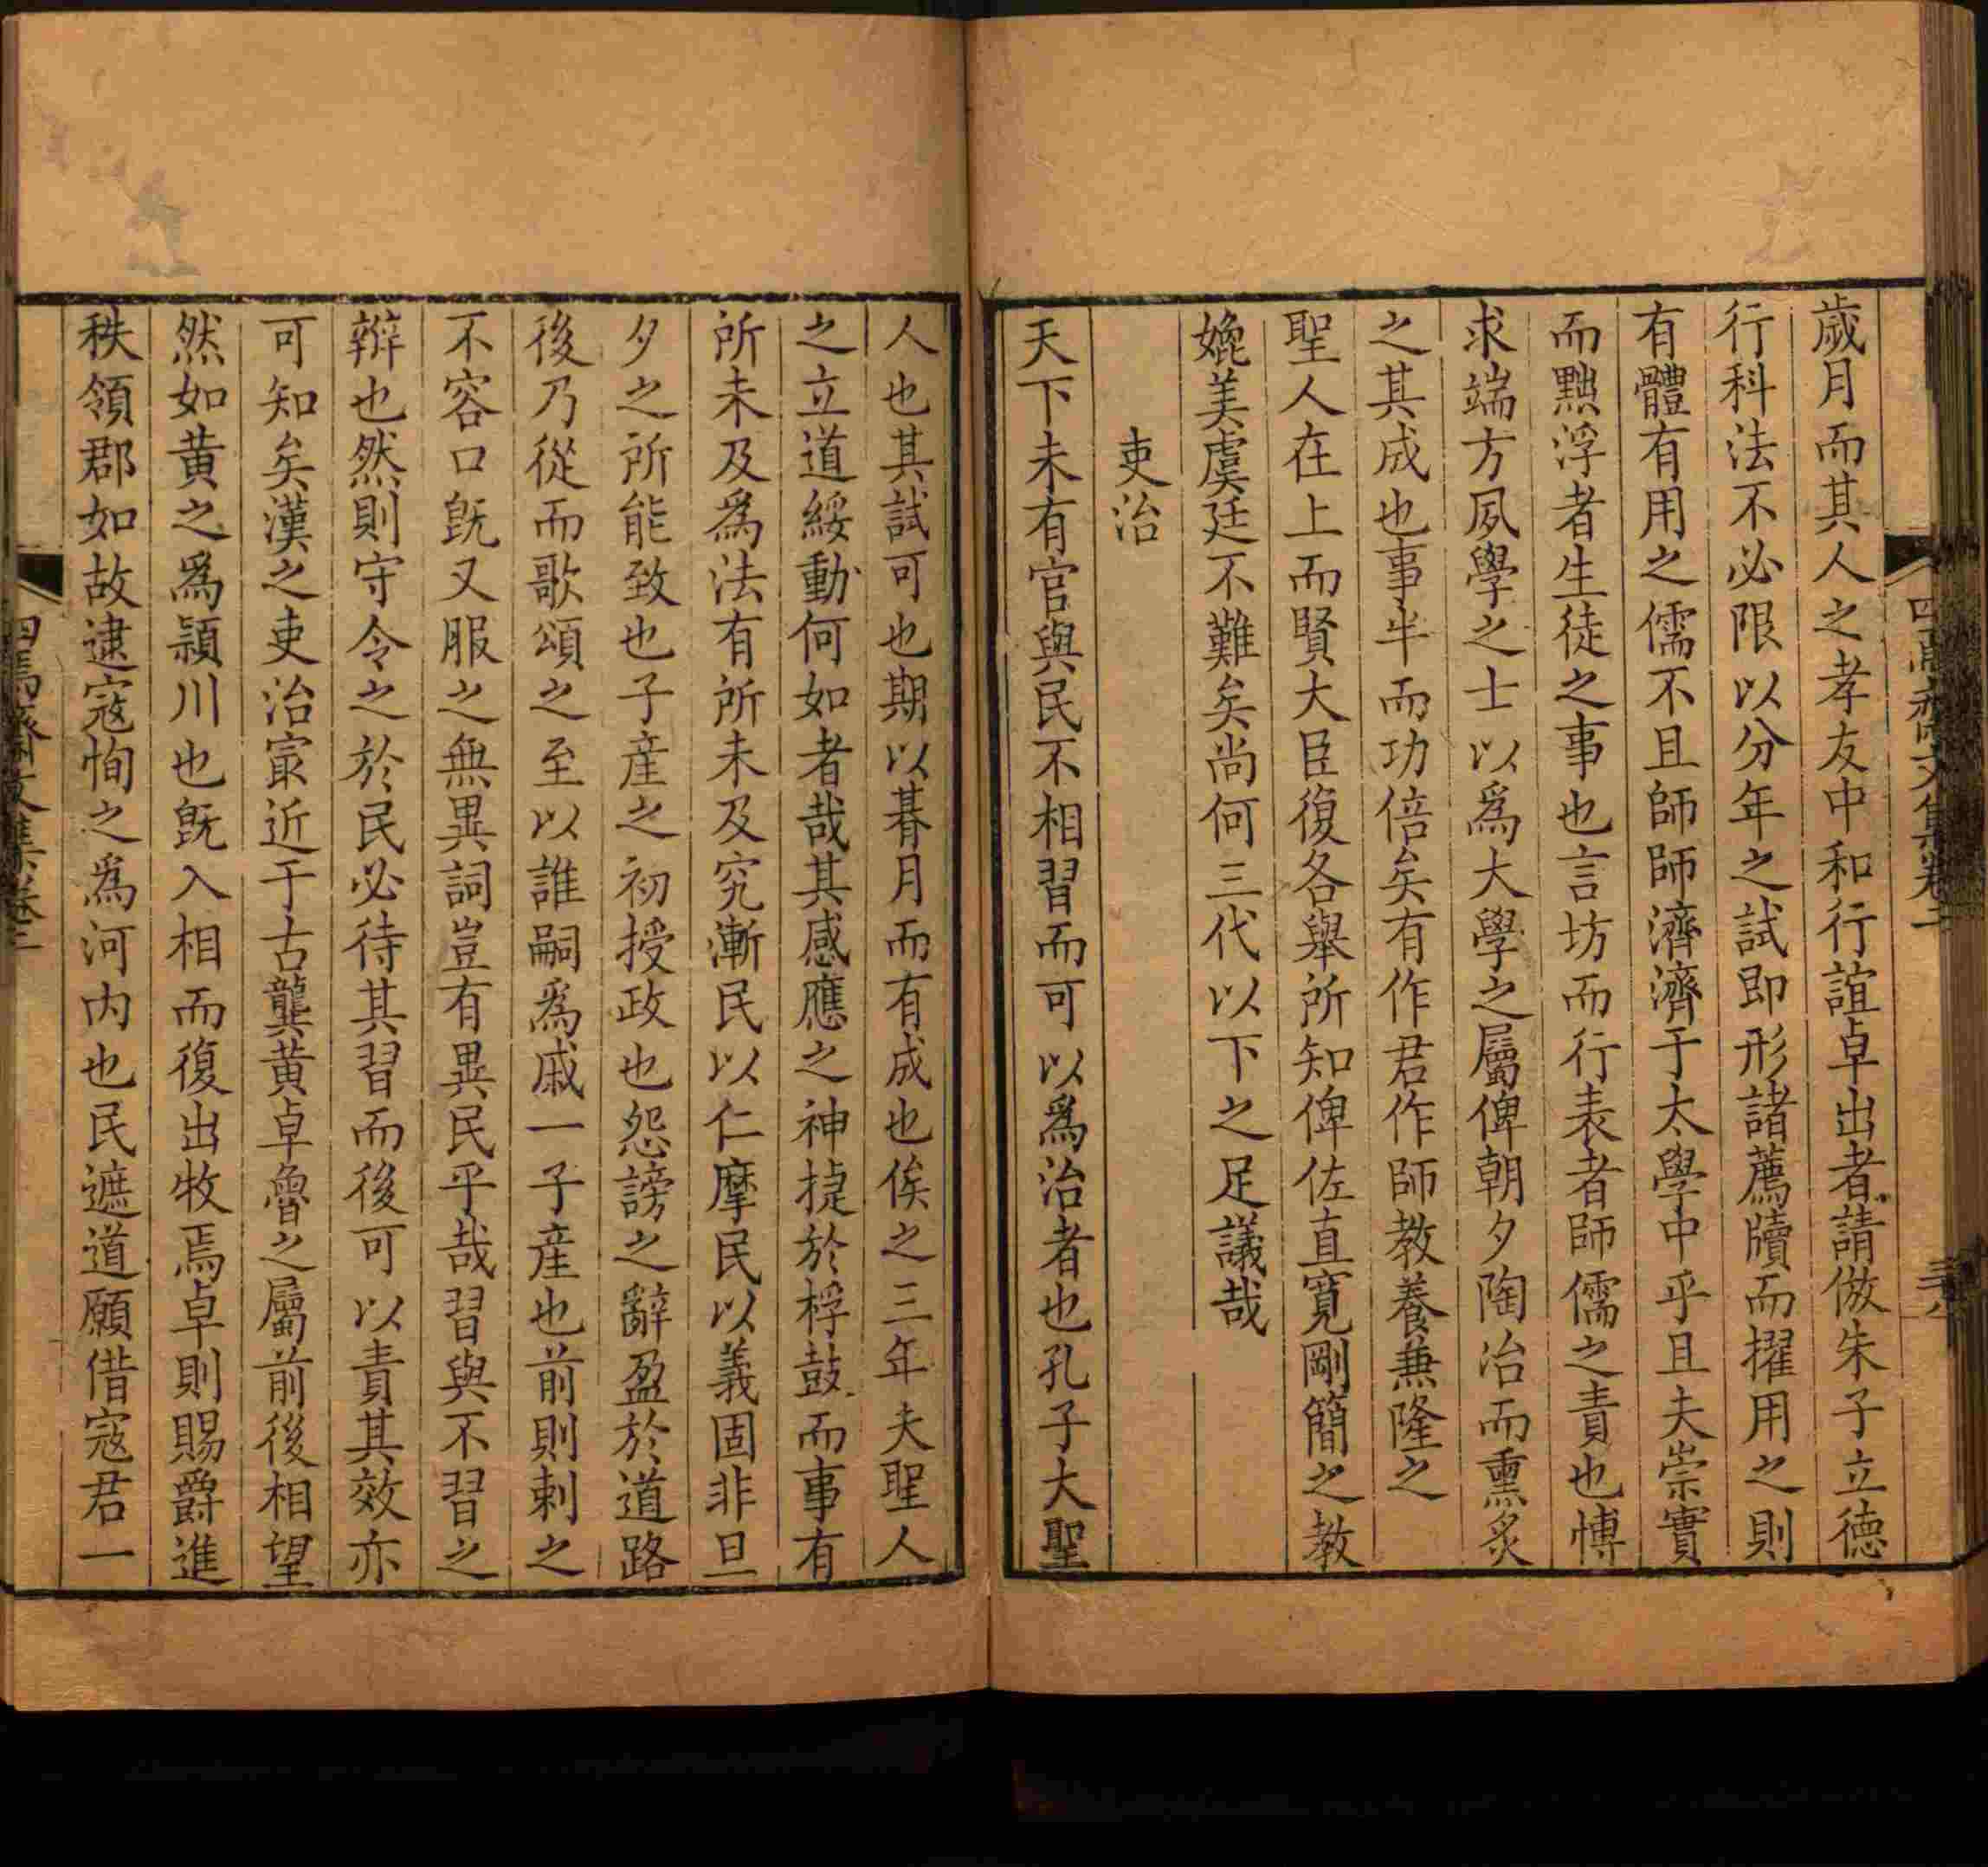 歲月而其人之孝友中和行誼卓出者請倣朱子立德
行科法不必限以分年之試即形諸薦牘而擢用之則
有體有用之儒不且師師濟濟于太學中乎且夫崇實
而黜浮者生徒之事也言坊而行表者師儒之責也愽
求端方夙學之士以爲大學之屬俾朝夕陶冶而熏炙
之其成也事半而功倍矣有作君作師教養兼隆之
聖人在上而賢大臣復各舉所知俾佐直寬剛簡之教
媲美虞廷不難矣尚何三代以下之足議哉
吏治
天下未有官與民不相習而可以爲治者也孔子大聖
人也其試可也期以朞月而有成也俟之三年夫聖人
之立道綏動何如者哉其感應之神捷於桴鼓而事有
所未及爲法有所未及究漸民以仁摩民以義固非旦
夕之所能致也子產之初授政也怨謗之辭盈於道路
後乃從而歌頌之至以誰嗣爲戚一子產也前則刺之
不容口既又服之無異詞豈有異民乎哉習與不習之
辯也然則守令之於民必待其習而後可以責其效亦
可知矣漢之吏治冣近于古龔黄卓魯之屬前後相望
然如黄之爲潁川也既入相而復出牧焉卓則賜爵進
秩領郡如故逮寇恂之爲河内也民遮道願借寇君一